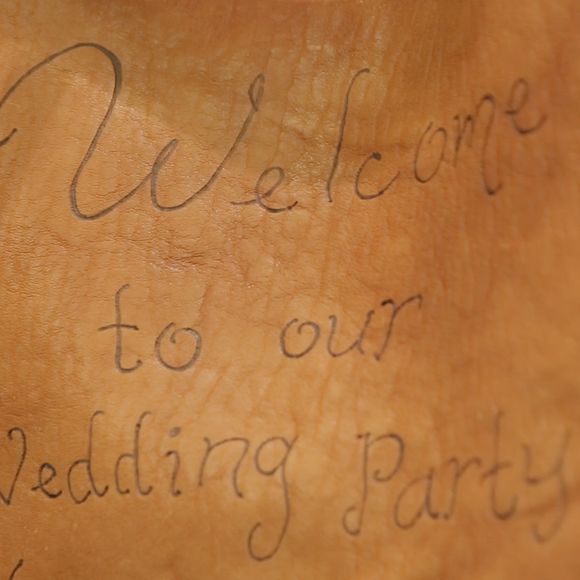 Welcome
to our
Wedding Party